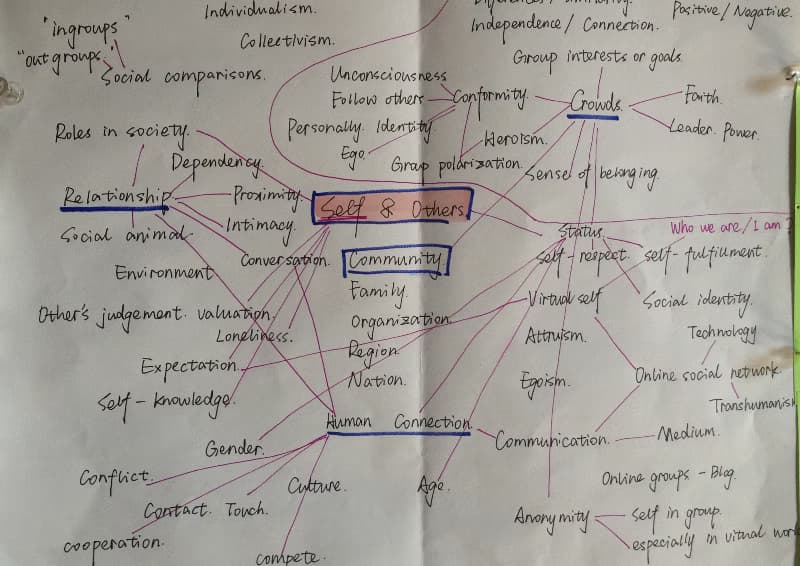 "ingroups"
"outgroups."
Social comparisons.
Individualism.
Collectivism.
Independence / Connection.
Positive / Negative.
Group interests or goals.
Unconsciousness
Follow others
Conformity.
Crowds.
Faith.
Leader. Power.
Personally Identity
Ego.
Heroism.
Group polarization.
Sense of belonging.
Roles in society.
Dependency.
Relationship
Proximity.
Intimacy.
Social animal.
Conversation.
Environment
Self & Others
Community
Family.
Organization.
Region.
Nation.
Status.
Who we are / I am ?
Self-respect.
self-fulfillment.
Virtual self
Social identity.
Technology
Attruism.
Egoism.
Online social network.
Transhumanism
Other's judgement. valuation.
Loneliness.
Expectation.
Self-knowledge.
Human Connection.
Communication.
Medium.
Gender.
Conflict.
Culture.
Age.
Contact. Touch.
cooperation.
compete.
Online groups - Blog.
Anonymity
self in group.
especially in vitual work